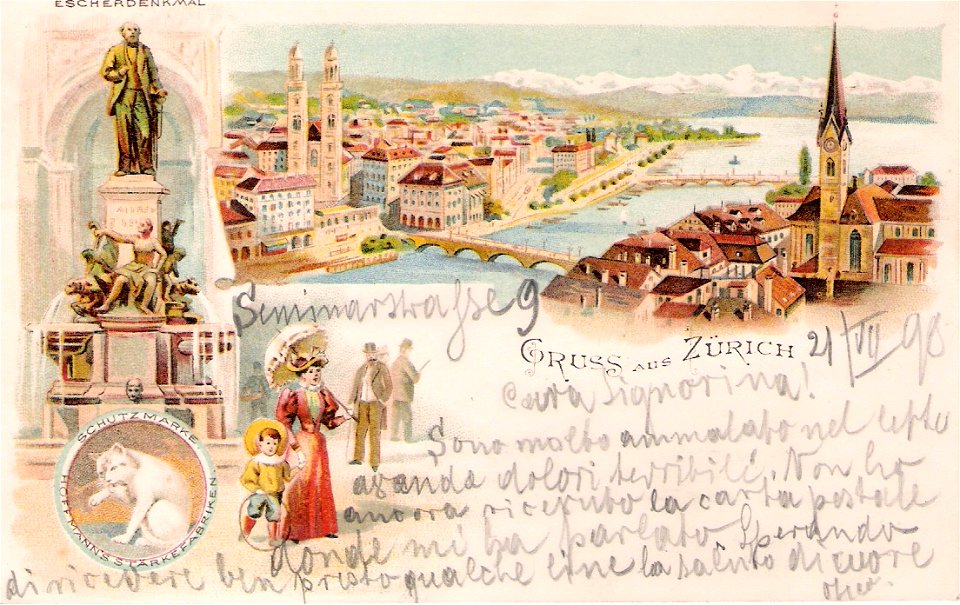 ESCHERDENKMAL
Seminarstrasse 9
GRUSS AUS ZÜRICH 21/VII 98
Cara Signorina!
Sono molto ammalato nel letto
avendo dolori terribili. Non ho
ancora ricevuto la carta postale
donde mi ha parlato. Sperando
di ricevere ben presto qualche la saluto di cuore
SCHUTZMARKE
HOFFMANN'S STÄRKEFABRIKEN